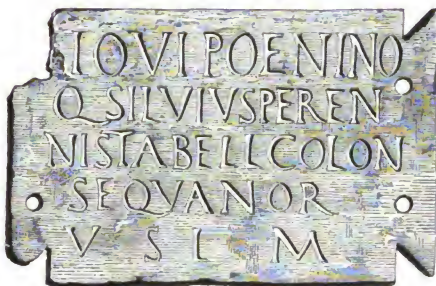 IOVI POENINO
Q SILVIVS PEREN
NIS TABELL COLON
SEQVANOR
V S L M